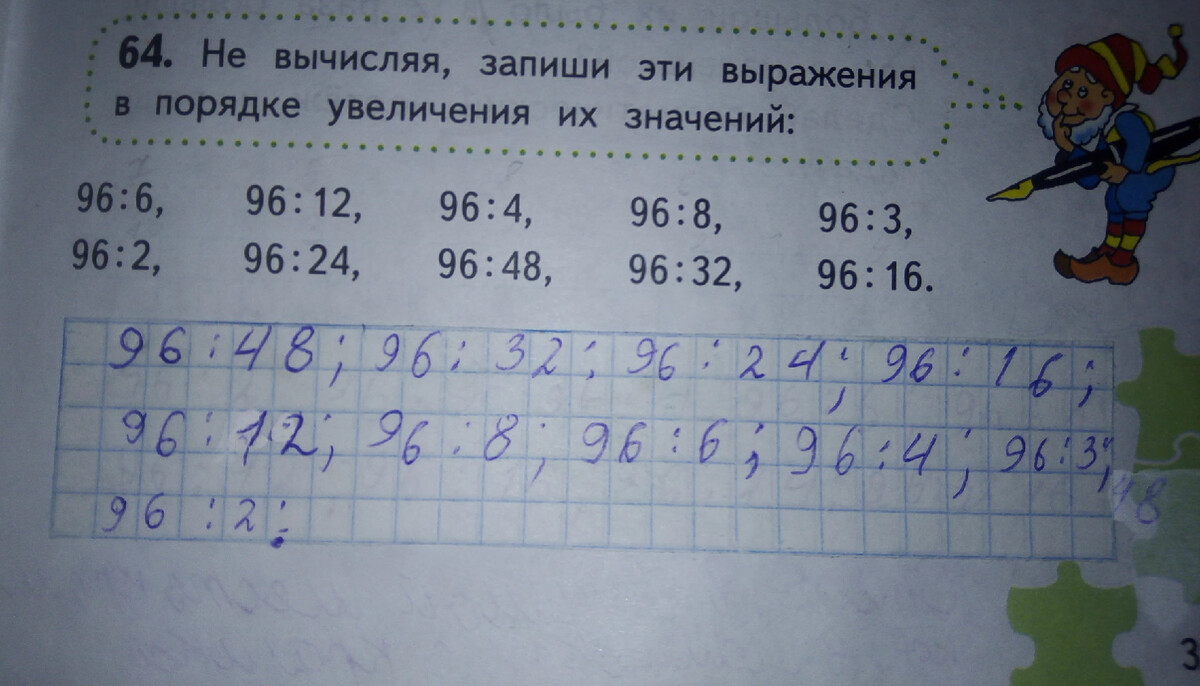 64. Не вычисляя, запиши эти выражения
в порядке увеличения их значений:
96:6, 96:12, 96:4, 96:8, 96:3,
96:2, 96:24, 96:48, 96:32, 96:16.
96:48; 96:32; 96:24; 96:16;
96:12; 96:8; 96:6; 96:4; 96:3;
48
96:2;
3